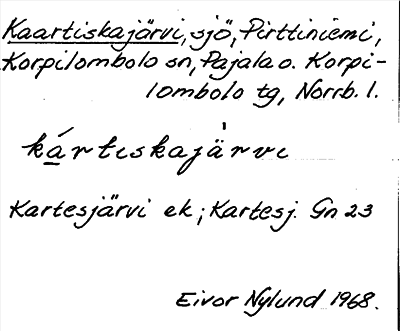 Kaartiskajärvi, sjö, Pirttiniemi,
Korpilombolo sn, Pajala o. Korpi-
lombolo tg, Norrb. l.
ká̱rtiskajä̀rvi
Kartesjärvi ek; Kartesj. Gn 23
Eivor Nylund 1968.